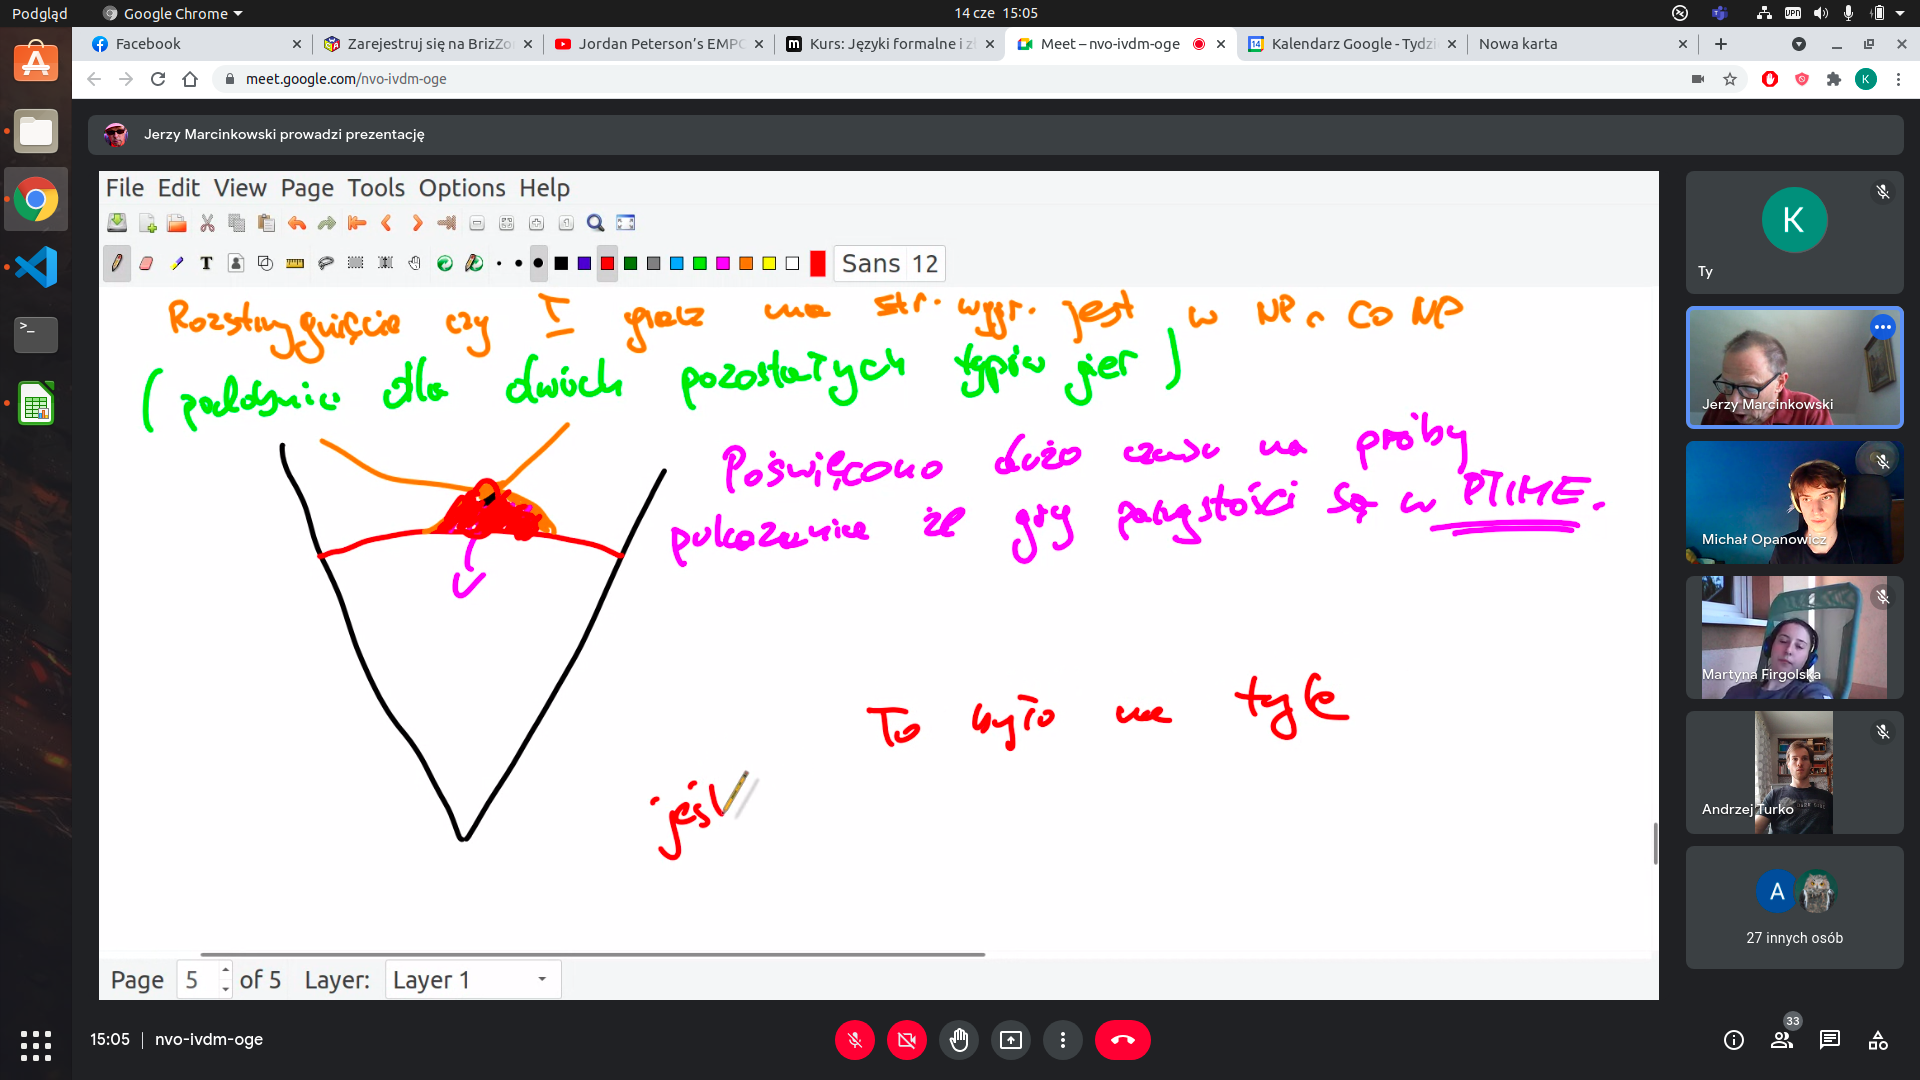 Podgląd
Google Chrome
14 cze 15:05
VPN
Facebook
Zarejestruj się na BrizZo
Jordan Peterson's EMPO
Kurs: Języki formalne i z
Meet – nvo-ivdm-oge
Kalendarz Google - Tydzi
Nowa karta
meet.google.com/nvo-ivdm-oge
K
Jerzy Marcinkowski prowadzi prezentację
File Edit View Page Tools Options Help
Sans 12
Rozstrzygnięcie czy I gracz ma str. wygr. jest w NP ∩ CO NP
( podobnie dla dwóch pozostałych typów gier )
Poświęcono dużo czasu na próby
pokazania że gry parzystości są w PTIME.
To było na tyle
jeśl
Page 5 of 5 Layer: Layer 1
K
Ty
Jerzy Marcinkowski
Michał Opanowicz
Martyna Firgolska
Andrzej Turko
A
27 innych osób
15:05 | nvo-ivdm-oge
33